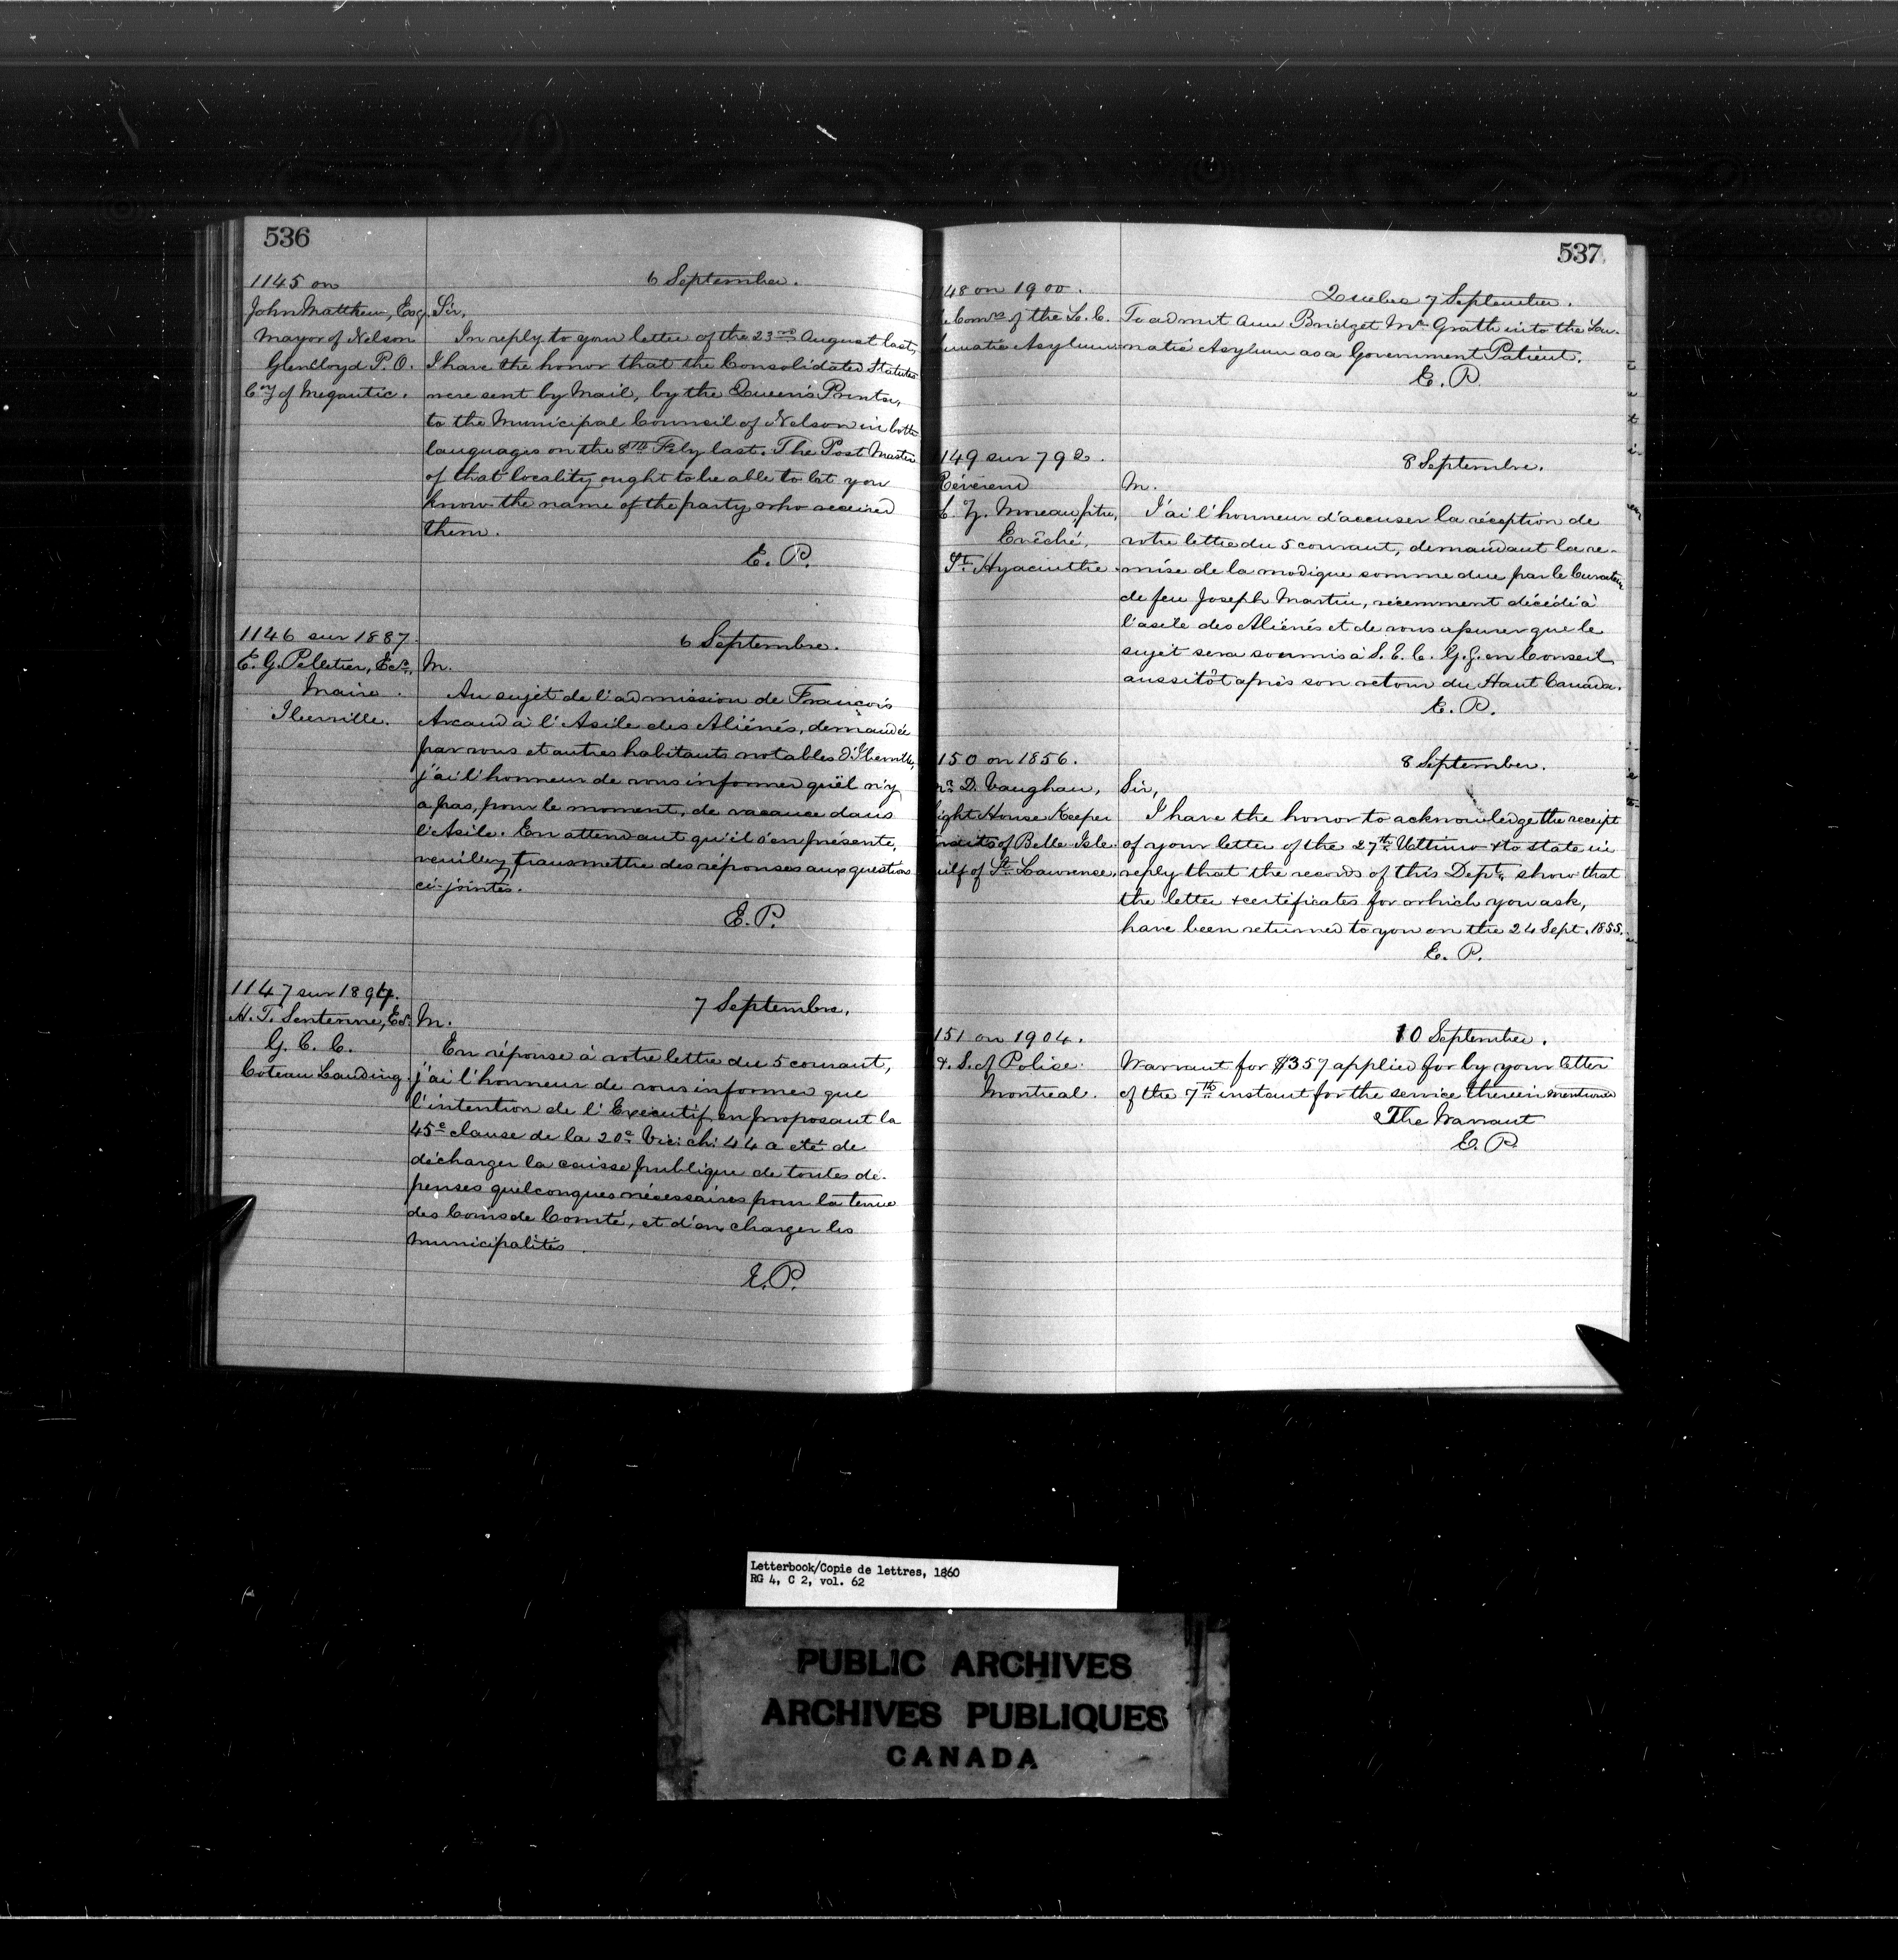 536
1145 on
John Matthew, Esq.
Mayor of Nelson
Glenlloyd P. O.
Cny of Megantic.
6 September.
Sir,
In reply to your letter of the 23rd August last,
I have the honor that the Consolidated Statutes
were sent by Mail, by the Queen's Printer,
to the Municipal Council of Nelson in both
languages on the 8th Feby last. The Post Master
of that locality ought to be able to let you
know the name of the party who received
them.
E. P.
1146 sur 1887.
E. G. Pelletier, Ecr.
Maire.
Iberville.
6 Septembre.
M.
Au sujet de l'admission de François
Arcand à l'Asile des Aliénés, demandée
par vous et autres habitants notables d'Iberville,
j'ai l'honneur de vous informer quel n'y
a pas, pour le moment, de vacance dans
l'Asile. En attendant qu'il s'en présente,
veuillez transmettre des réponses aux questions
ci-jointes.
E. P.
1147 sur 1894.
H. T. Sentenne, Ecr.
G. C. C.
Coteau Landing.
7 Septembre.
M.
En réponse à votre lettre du 5 courant,
j'ai l'honneur de vous informer que
l'intention de l'Executif en proposant la
45e clause de la 20e Vic: ch: 44 a été de
décharger la caisse publique de toutes dé-
penses quelconques nécessaires pour la tenue
des Cours de Comté, et d'en charger les
municipalités.
E. P.
537
148 on 1900.
Comrs of the L. C.
unatic Asylum
Quebec 7 September.
To admit Ann Bridget McGrath into the Lu-
natic Asylum as a Government Patient.
E. P.
1149 sur 792.
Révérend
Z. Moreau, ptre,
Evêché,
St Hyacinthe
8 Septembre.
M.
J'ai l'honneur d'accuser la réception de
votre lettre du 5 courant, demandant la re-
mise de la modique somme due par le Curateur
de feu Joseph Martin, récemment décédé à
l'asile des Aliénés et de vous assurer que le
sujet sera soumis à S. E. l. G. G. en Conseil
aussitôt après son retour du Haut Canada.
E. P.
150 on 1856.
D. Vaughan,
ight House Keeper
raits of Belle Isle
ulf of St Lawrence.
8 September.
Sir,
I have the honor to acknowledge the receipt
of your letter of the 27th Ultimo & to state in
reply that the records of this Dept. show that
the letter & certificates for which you ask,
have been returned to you on the 24 Sept. 1855.
E. P.
151 on 1904.
& S. of Police
Montreal.
10 September.
Warrant for $357 applied for by your letter
of the 7th instant for the service therein mentioned
The Warrant
E. P.
Letterbook/Copie de lettres, 1860
RG 4, C 2, vol. 62
PUBLIC ARCHIVES
ARCHIVES PUBLIQUES
CANADA